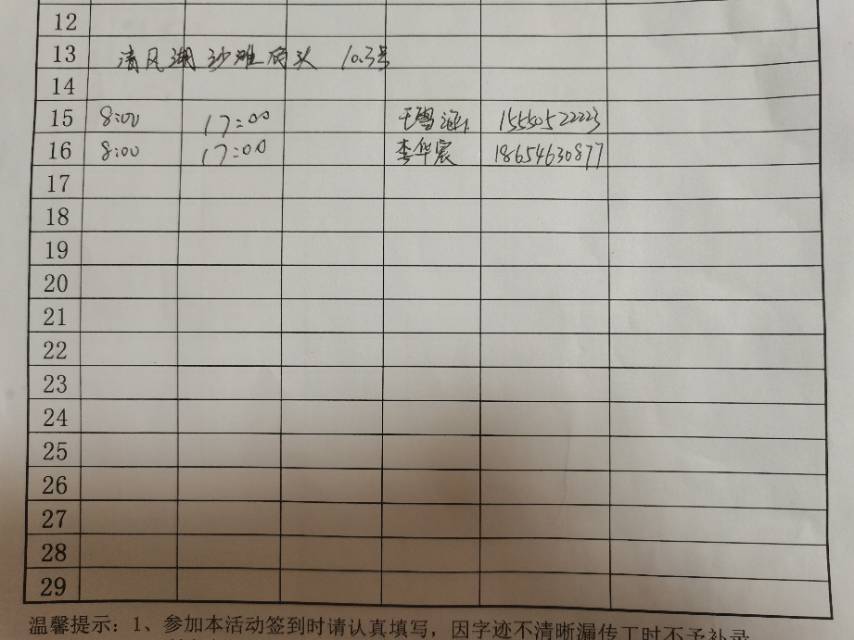 12
13 清风湖沙滩码头 10.3号
14
15 8:00 17:00 王雪 15550522223
16 8:00 17:00 李华宸 18654630877
17
18
19
20
21
22
23
24
25
26
27
28
29
温馨提示：1、参加本活动签到时请认真填写，因字迹不清晰漏传工时不予补录